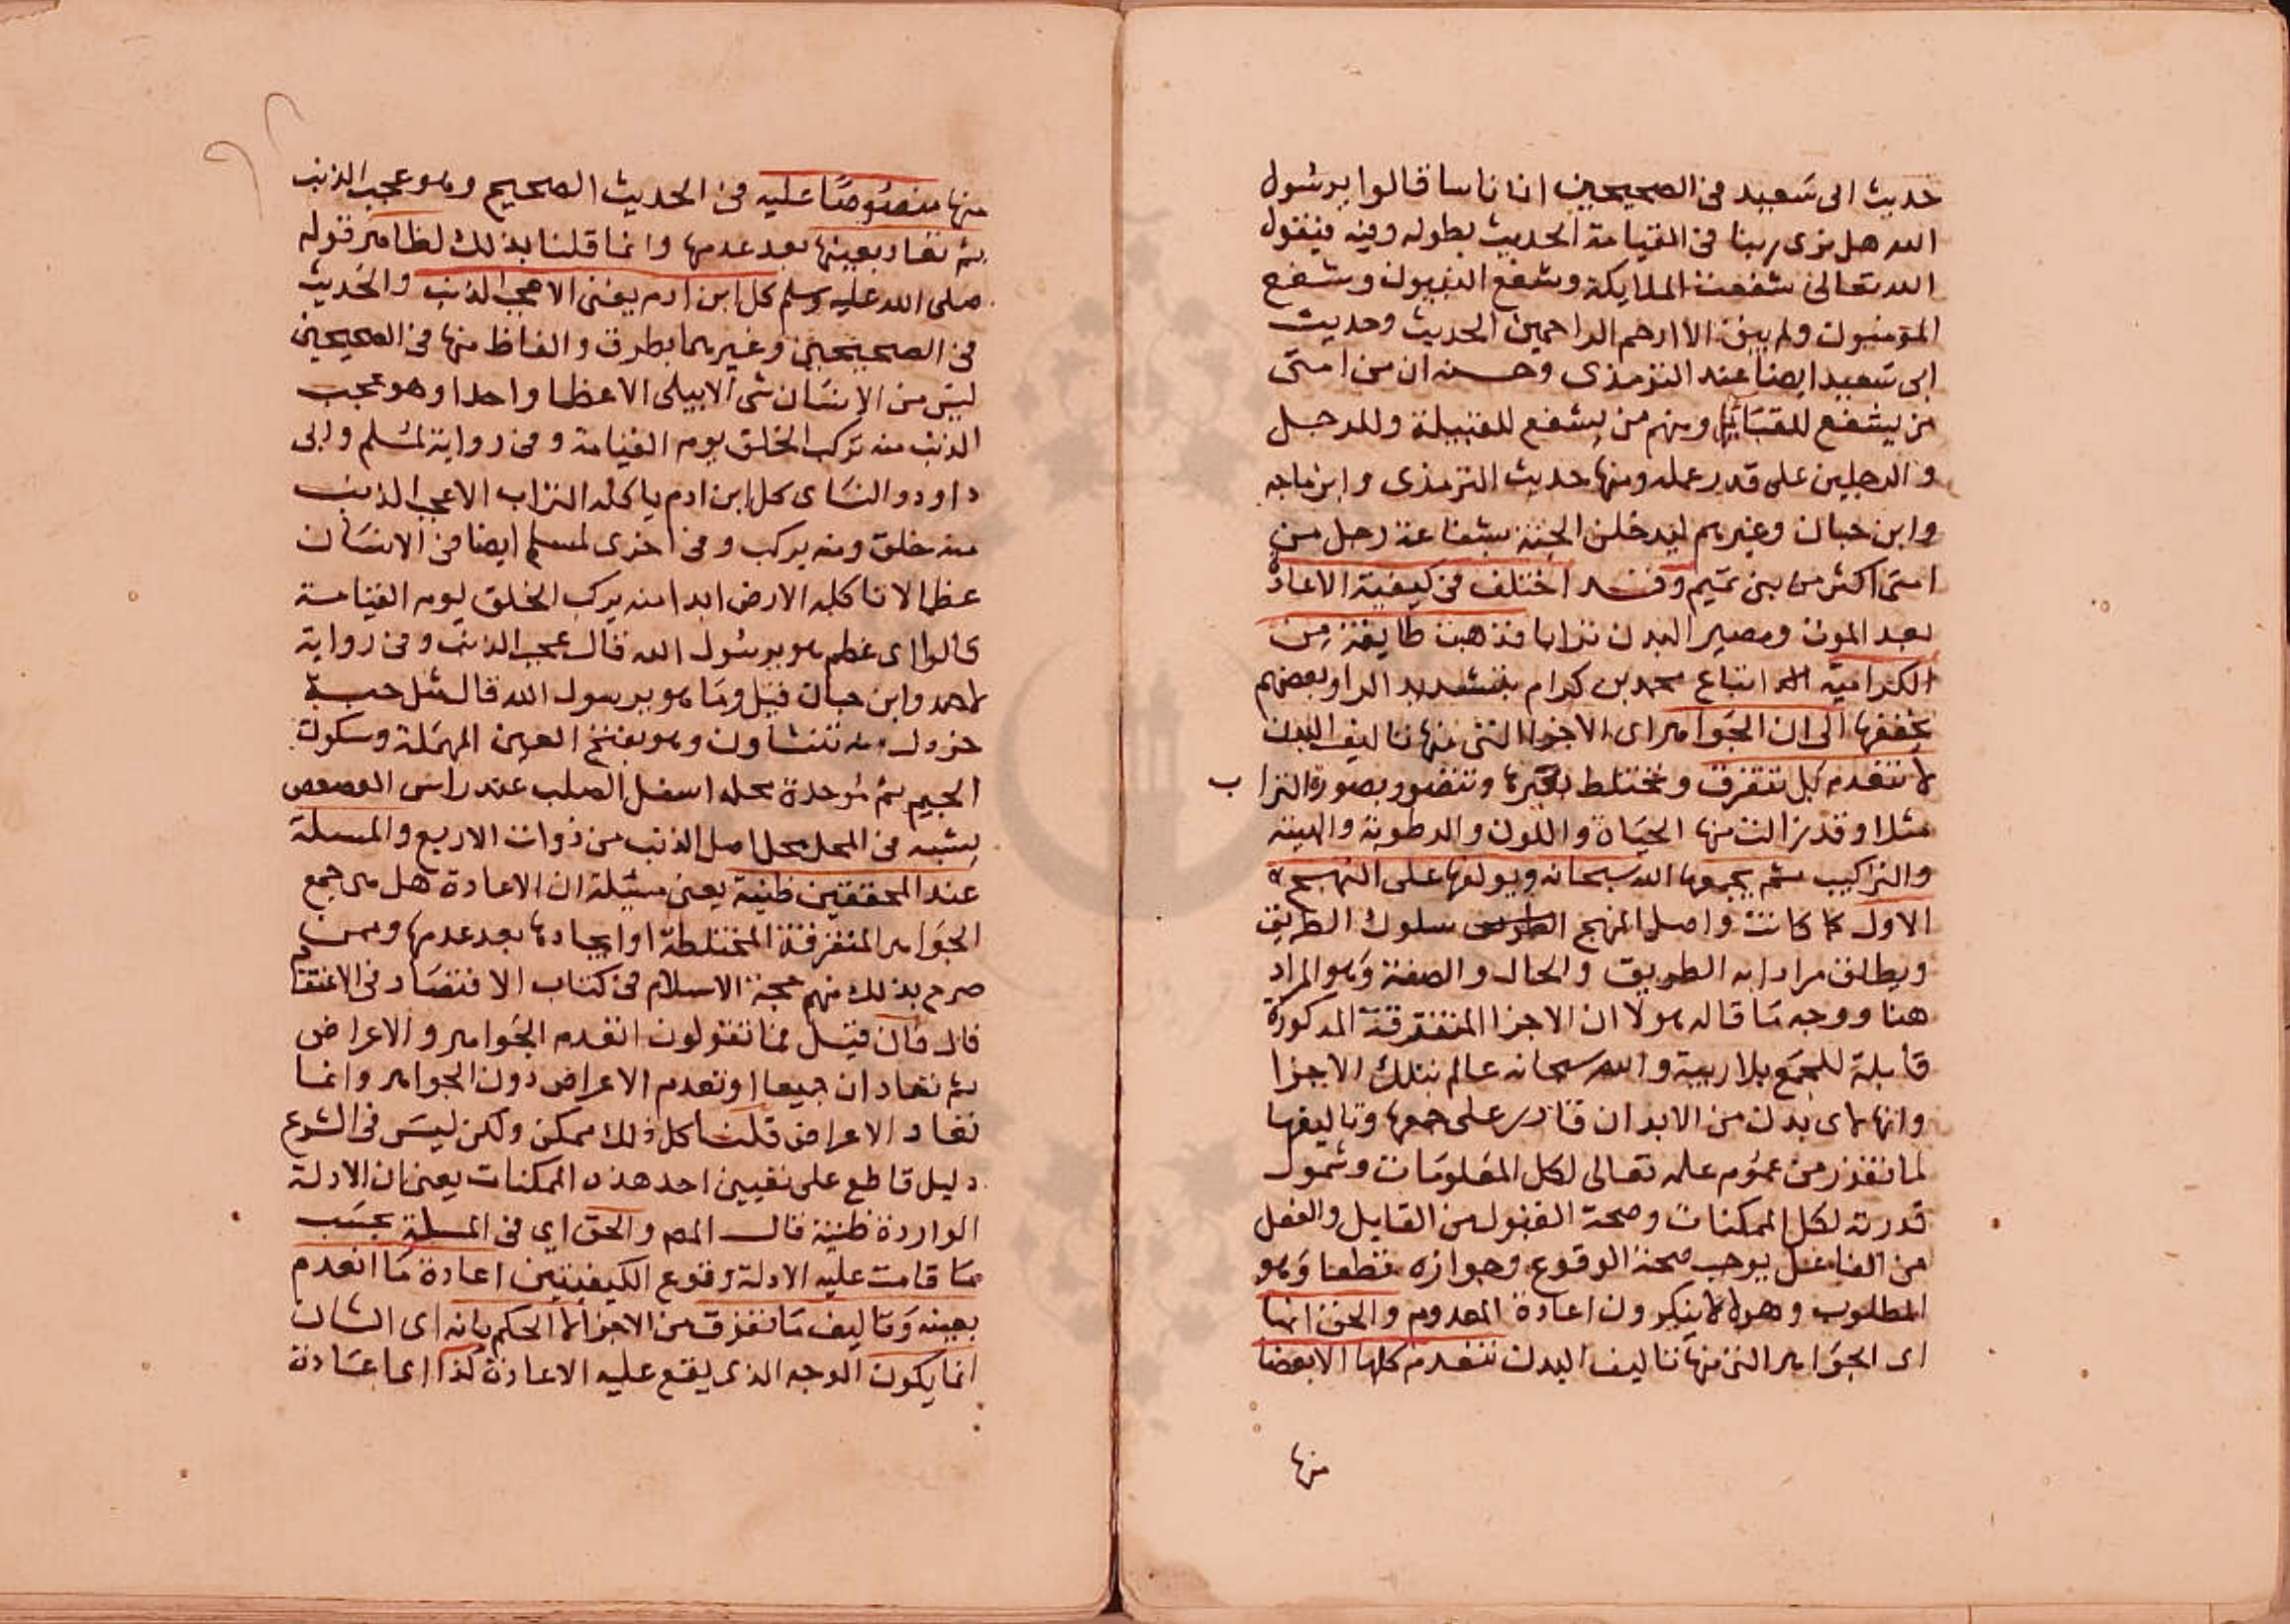 حديث ابى سعيد فى الصحيحين ان ناسا قالوا يرسول
الله هل نرى ربنا فى القيامة الحديث بطوله وفيه فيقول
الله تعالى شفعت الملايكة وشفع النبيون وشفع
المؤمنون ولم يبق الا ارحم الراحمين الحديث وحديث
ابى سعيد ايضا عند الترمذى وحسنه ان من امتى
من يشفع للقبايل ومنهم من يشفع للقبيلة وللرجل
والرجلين على قدر عمله ومنها حديث الترمذى وابن ماجه
وابن حبان وغيرهم ليدخلن الجنة بشفاعة رجل من
امتى اكثر من بنى تميم وقد اختلف فى كيفية الاعادة
بعد الموت ومصير البدن ترابا فذهبت طايفة من
الكرامية اتباع محمد بن كرام بتشديد الرا وبعضهم
يخففها الى ان الجواهر اى الاجزا التى منها تاليف البدن
لا تنعدم بل تتفرق وتختلط بغيرها وتتصور بصورة التراب
مثلا وقد زالت منها الحياة واللون والرطوبة والهيئة
والتراكيب ثم يجمعها الله سبحانه ويولفها على النهج
الاول كما كانت واصل المنهج سلوك الطريق
ويطلق مرادا به الطريق والحال والصفة وهو المراد
هنا ووجه ما قاله هولا ان الاجزا المتفرقة المذكورة
قابلة للجمع بلا ريبة والله سبحانه عالم بتلك الاجزا
وانها لاى بدن من الابدان قادر على جمعها وتاليفها
لما تقرر من عموم علمه تعالى لكل المعلومات وشمول
قدرته لكل الممكنات وصحة القبول من القابل والفعل
من الفاعل يوجب صحة الوقوع وجوازه قطعا وهو
المطلوب وهولا لا ينكرون اعادة المعدوم والحق انها
اى الجواهر التى منها تاليف البدن تنعدم كلها الا بعضا
منها
منها منصوصًا عليه فى الحديث الصحيح وهو عجب الذنب
ثم تعاد بعينها بعد عدمها وانما قلنا بذلك لظاهر قوله
صلى الله عليه وسلم كل ابن ادم يفنى الا عجب الذنب والحديث
فى الصحيحين وغيرهما بطرق والفاظ منها فى الصحيحين
ليس من الانسان شى الا يبلى الا عظما واحدا وهو عجب
الذنب منه تركب الخلق يوم القيامة وفى رواية لمسلم وابى
داود والنساى كل ابن ادم ياكله التراب الا عجب الذنب
منه خلق ومنه يركب وفى اخرى لمسلم ايضا فى الانسان
عظما لا تاكله الارض ابدا منه يركب الخلق يوم القيامة
قالوا اى عظم هو يرسول الله قال عجب الذنب وفى رواية
لاحمد وابن حبان قيل وما هو يرسول الله قال مثل حبة
خردل منه تنشاون وهو بفتح العين المهملة وسكون
الجيم ثم موحدة محله اسفل الصلب عند راس العصعص
يشبه فى المحل محل اصل الذنب من ذوات الاربع والمسلة
عند المحققين ظنية يعنى مسئلة ان الاعادة هل هى جمع
الجواهر المتفرقة المختلطة او ايجادها بعد عدمها وممن
صرح بذلك منهم حجة الاسلام فى كتاب الاقتصاد فى الاعتقاد
قال فان قيل فما تقولون اتعدم الجواهر والاعراض
ثم تعادان جميعا او تعدم الاعراض دون الجواهر وانما
تعاد الاعراض قلنا كل ذلك ممكن ولكن ليس فى الشرع
دليل قاطع على تعيين احد هذه الممكنات يعنى ان الادلة
الواردة ظنية قال المص والحق اى فى المسلة بحسب
ما قامت عليه الادلة وقوع الكيفيتين اعادة ما انعدم
بعينه وتاليف ما تفرق من الاجزا لا الحكم بانه اى الشان
انما يكون الوجه الذى يقع عليه الاعادة كذا اى اعادة